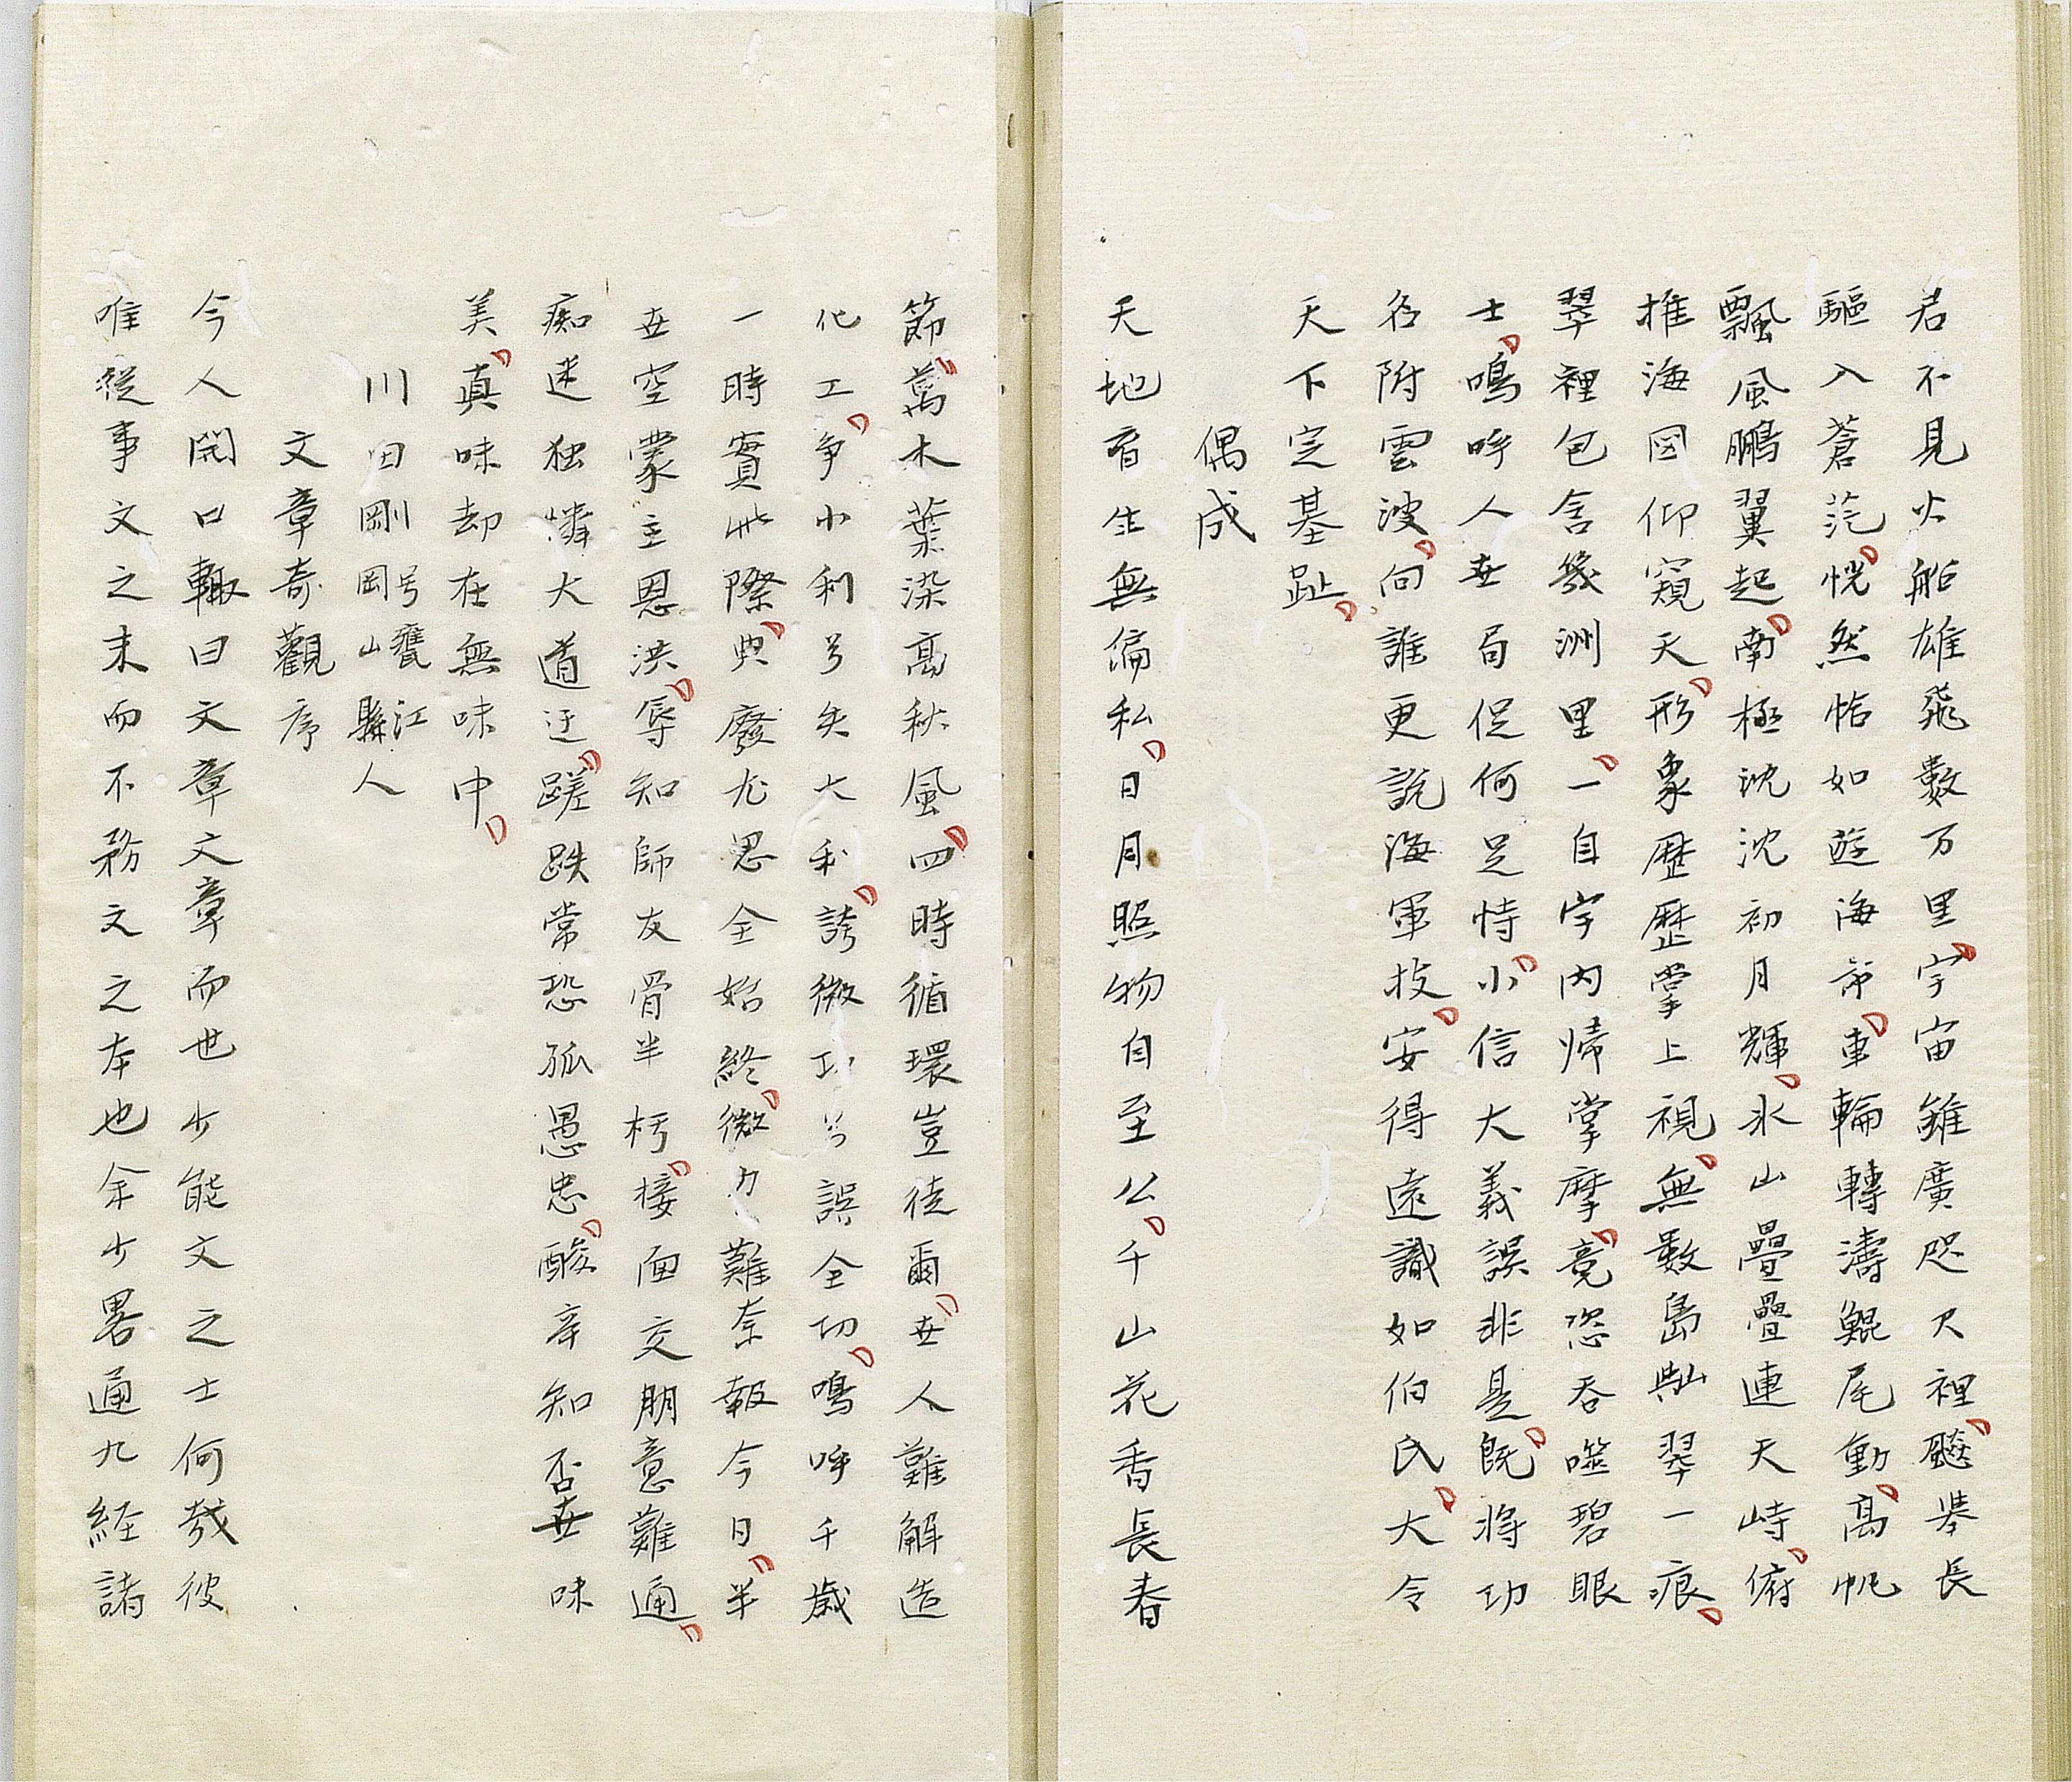 君不見火船雄飛數万里宇宙雖廣咫尺裡颷举長
驅入蒼茫恍然恰如遊海市車輪轉濤鯤尾動高帆
飄風鵬翼起南極沈沈初月輝氷山疊疊連天峙俯
推海図仰窺天形象歴歴掌上視無數島㠗翠一痕
翠裡包含幾洲里一自宇内帰掌摩竟恣吞噬碧眼
士鳴呼人世局促何足恃小信大義誤非是既将功
名附雲波向誰更説海軍技安得遠識如伯氏大令
天下定基趾
偶成
天地育生無偏私日月照物自至公千山花香長春
節萬木葉染高秋風四時循環豈徒爾世人難解造
化工争小利兮失大利誇微功兮誤全功鳴呼千歳
一時實此際典廢尤思全始終微力難奈報今日半
世空蒙主恩洪辱知師友骨半朽接面交朋意難通
痴迷独憐大道迂蹉跌常恐孤愚忠酸辛知否世味
美真味却在無味中
川田剛号甕江岡山縣人
文章奇觀序
今人開口輙曰文章文章而世少能文之士何哉彼
唯従事文之末而不務文之本也余少畧通九経諸